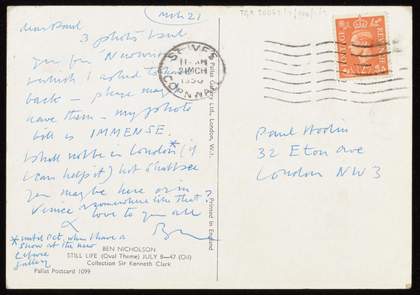 March 21
Dear Paul
3 photos
for
which I asked
back – please may
have them – my photo
bill is IMMENSE.
I shall not be in London* (if
I can help it) but shall see
you maybe here or in
Venice or somewhere like that?
& love to you all
Ben
*until Oct, when I have a
show at the new
Lefevre
gallery
BEN NICHOLSON
STILL LIFE (Oval Theme) JULY 8–47 (Oil)
Collection Sir Kenneth Clark
Pallas Postcard 1099
Pallas Gallery Ltd., London, W.1.
Printed in England
ST. IVES
MCH
1950
CORNWALL
POSTAGE
REVENUE
Paul Hodin
32 Eton Ave
London NW3